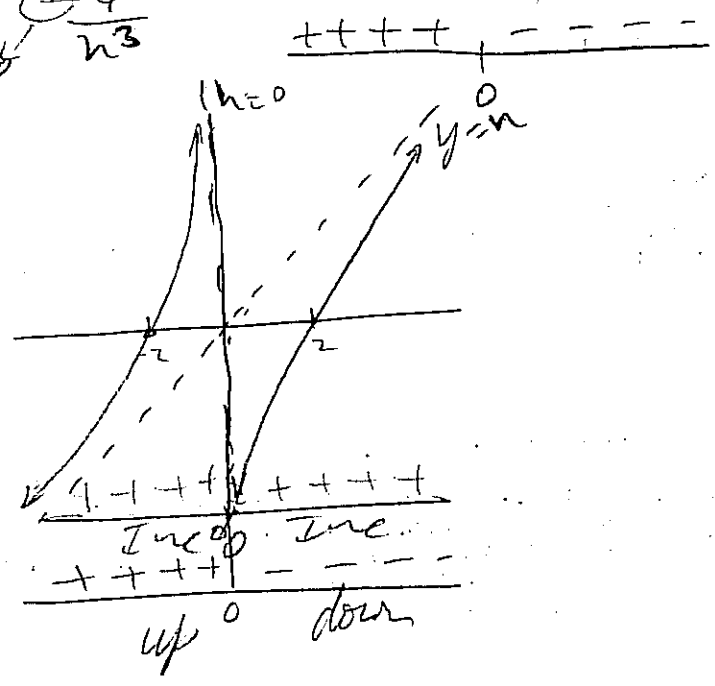 4
n³
++++ - - - -
0
n=0
y=n
-2
2
++++ ++++
Inc 0 Inc.
++++ - - - -
up 0 down